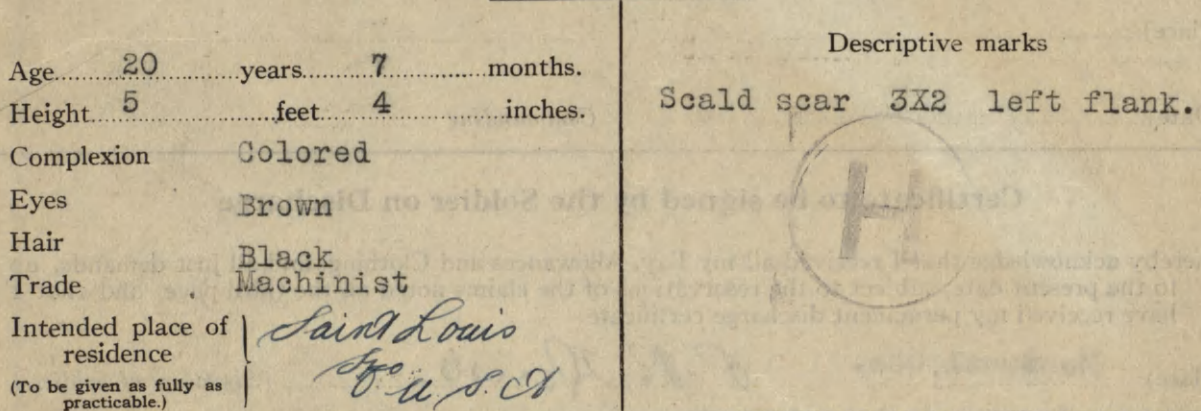 Age 20 years 7 months.
Height 5 feet 4 inches.
Complexion Colored
Eyes Brown
Hair Black
Trade Machinist
Intended place of residence Saint Louis
(To be given as fully as practicable.) U.S.A
Descriptive marks
Scald scar 3X2 left flank.
H